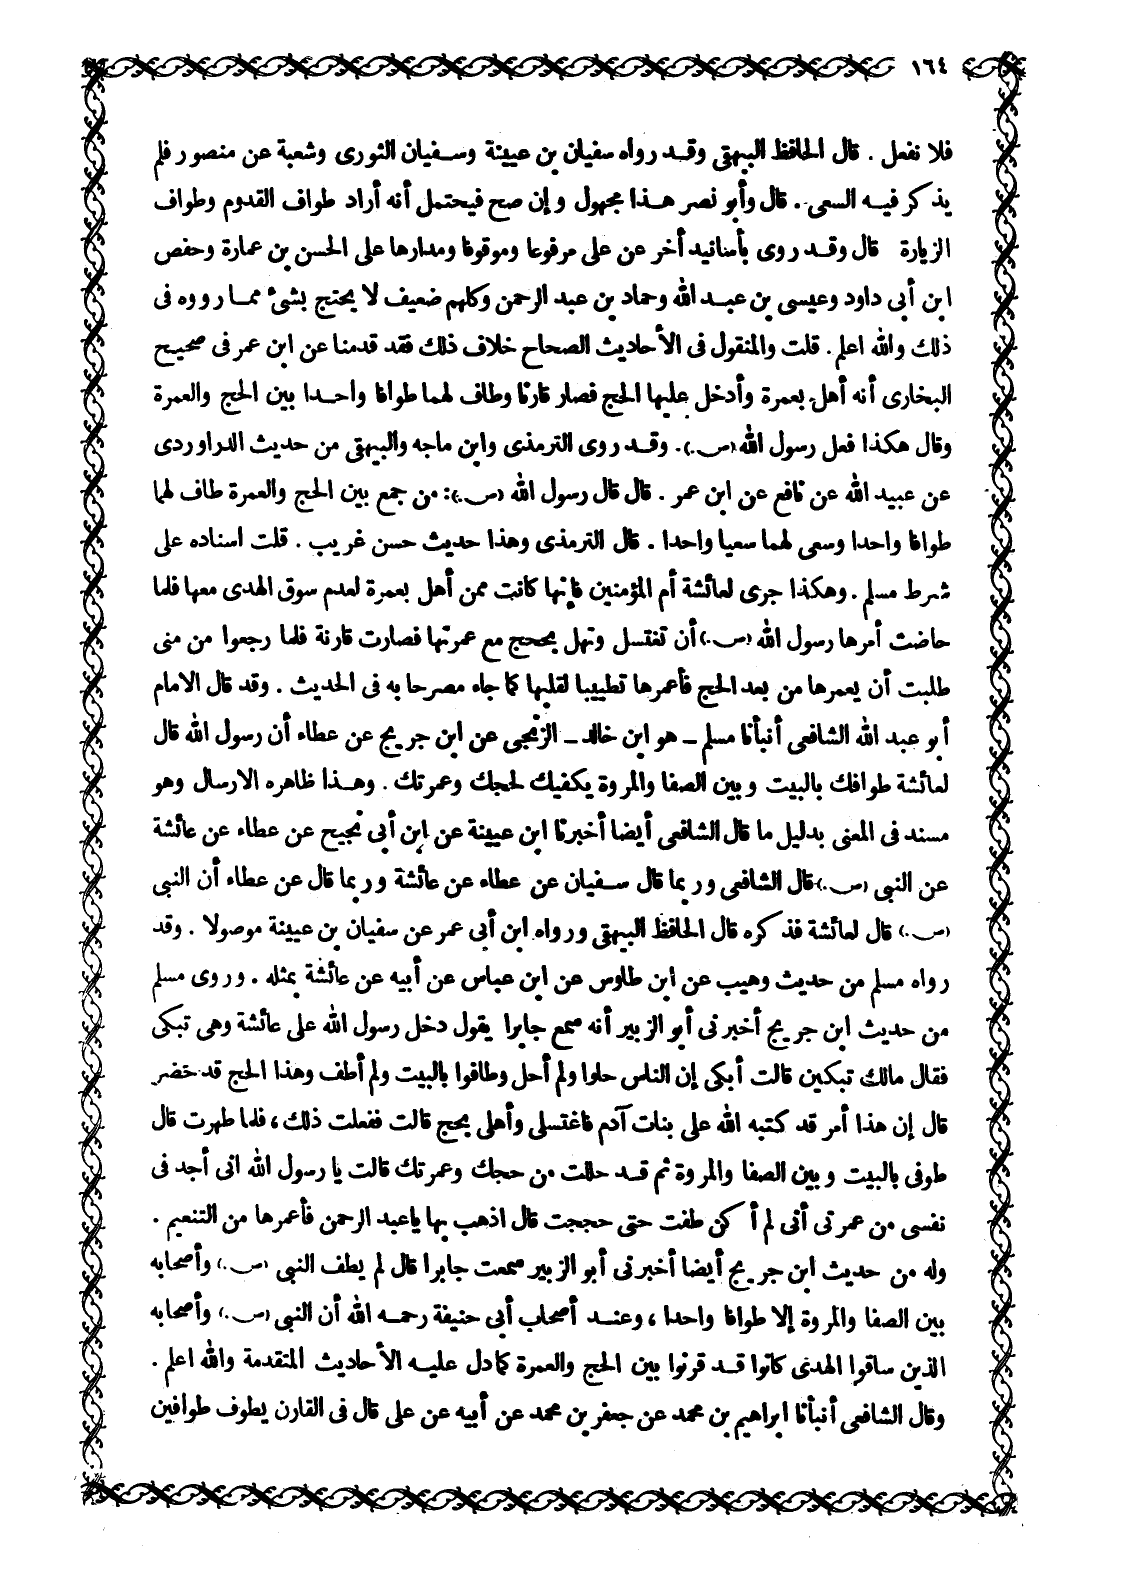 ١٦٤
فلا نفعل . قال الحافظ البيهقى وقد رواه سفيان بن عيينة وسفيان الثورى وشعبة عن منصور فلم
يذكر فيه السعى . قال وأبو نصر هذا مجهول وإن صح فيحتمل أنه أراد طواف القدوم وطواف
الزيارة قال وقد روى بأسانيد أخر عن على مرفوعا وموقوفا ومدارها على الحسن بن عمارة وحفص
ابن أبى داود وعيسى بن عبد الله وحماد بن عبد الرحمن وكلهم ضعيف لا يحتج بشئ مما رووه فى
ذلك والله اعلم . قلت والمنقول فى الأحاديث الصحاح خلاف ذلك فقد قدمنا عن ابن عمر فى صحيح
البخارى أنه أهل بعمرة وأدخل عليها الحج فصار قارنا وطاف لهما طوافا واحدا بين الحج والعمرة
وقال هكذا فعل رسول الله (ص.). وقد روى الترمذى وابن ماجه والبيهقى من حديث الدراوردى
عن عبيد الله عن نافع عن ابن عمر . قال قال رسول الله (ص.): من جمع بين الحج والعمرة طاف لهما
طوافا واحدا وسعى لهما سعيا واحدا . قال الترمذى وهذا حديث حسن غريب . قلت اسناده على
شرط مسلم . وهكذا جرى لعائشة أم المؤمنين فإنها كانت ممن أهل بعمرة لعدم سوق الهدى معها فلما
حاضت أمرها رسول الله (ص.) أن تغتسل وتهل بحجج مع عمرتها فصارت قارنة فلما رجعوا من منى
طلبت أن يعمرها من بعد الحج فأعمرها تطييبا لقلبها كما جاء مصرحا به فى الحديث . وقد قال الامام
أبو عبد الله الشافعى أنبأنا مسلم ــ هو ابن خالد ــ الزنجى عن ابن جريج عن عطاء أن رسول الله قال
لعائشة طوافك بالبيت وبين الصفا والمروة يكفيك لحجك وعمرتك . وهذا ظاهره الارسال وهو
مسند فى المعنى بدليل ما قال الشافعى أيضا أخبرنا ابن عيينة عن ابن أبى نجيح عن عطاء عن عائشة
عن النبى (ص.) قال الشافعى وربما قال سفيان عن عطاء عن عائشة وربما قال عن عطاء أن النبى
(ص.) قال لعائشة فذكره قال الحافظ البيهقى ورواه ابن أبى عمر عن سفيان بن عيينة موصولا . وقد
رواه مسلم من حديث وهيب عن ابن طاوس عن ابن عباس عن أبيه عن عائشة بمثله . وروى مسلم
من حديث ابن جريج أخبرنى أبو الزبير أنه سمع جابرا يقول دخل رسول الله على عائشة وهى تبكى
فقال مالك تبكين قالت أبكى إن الناس حلوا ولم أحل وطافوا بالبيت ولم أطف وهذا الحج قد حضر
قال إن هذا أمر قد كتبه الله على بنات آدم فاغتسلى وأهلى بحج قالت ففعلت ذلك ، فلما طهرت قال
طوفى بالبيت وبين الصفا والمروة ثم قد حللت من حجك وعمرتك قالت يا رسول الله انى أجد فى
نفسى من عمرتى أنى لم أكن طفت حتى حججت قال اذهب بها ياعبد الرحمن فأعمرها من التنعيم .
وله من حديث ابن جريج أيضا أخبرنى أبو الزبير سمعت جابرا قال لم يطف النبى (ص.) وأصحابه
بين الصفا والمروة إلا طوافا واحدا ، وعند أصحاب أبى حنيفة رحمه الله أن النبى (ص.) وأصحابه
الذين ساقوا الهدى كانوا قد قرنوا بين الحج والعمرة كما دل عليه الأحاديث المتقدمة والله اعلم .
وقال الشافعى أنبأنا ابراهيم بن محمد عن جعفر بن محمد عن أبيه عن على قال فى القارن يطوف طوافين